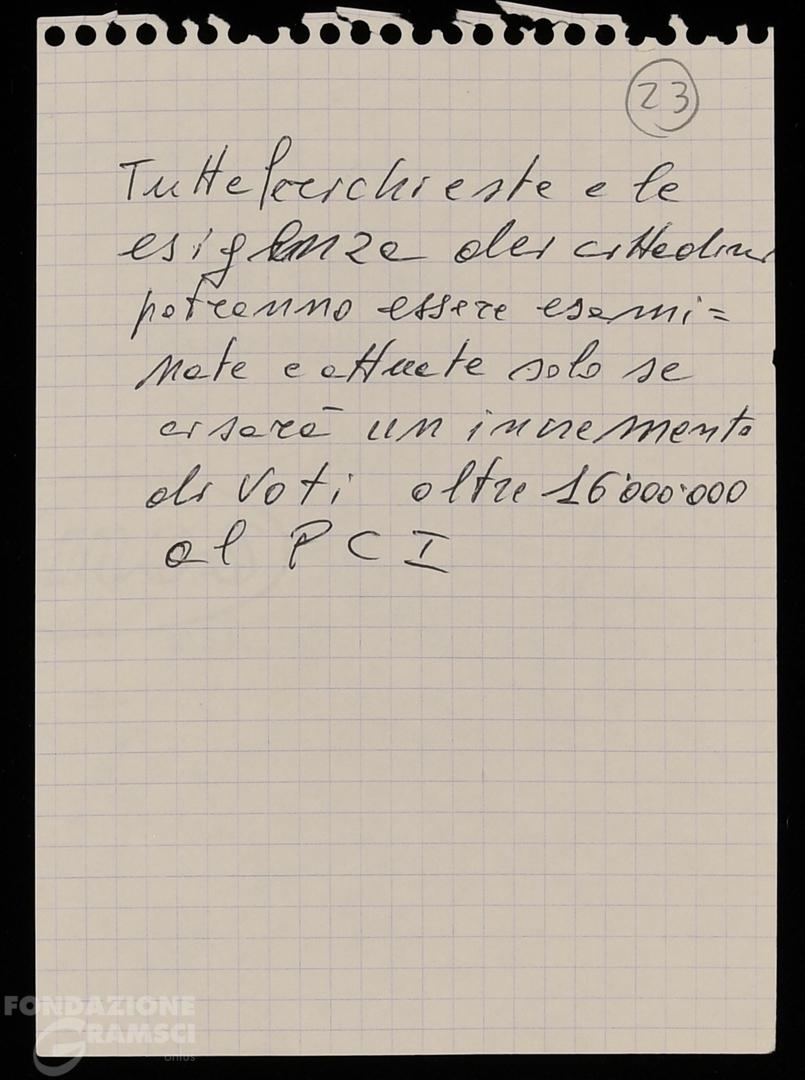 23
Tutte le richieste e le
esigenze dei cittadini
potranno essere esami=
nate e attuate solo se
ci sarà un incremento
di voti oltre 16'000'000
al PCI
FONDAZIONE
GRAMSCI
onlus